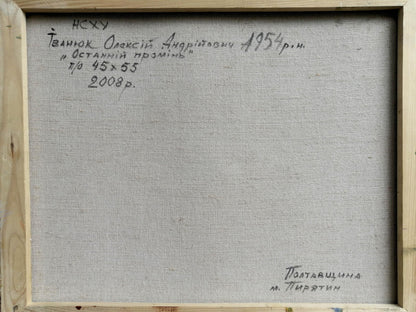 НСХУ
Іванюк Олексій Андрійович 1954 р.н.
„Останній промінь"
п/о 45х55
2008р.
Полтавщина
м. Пирятин